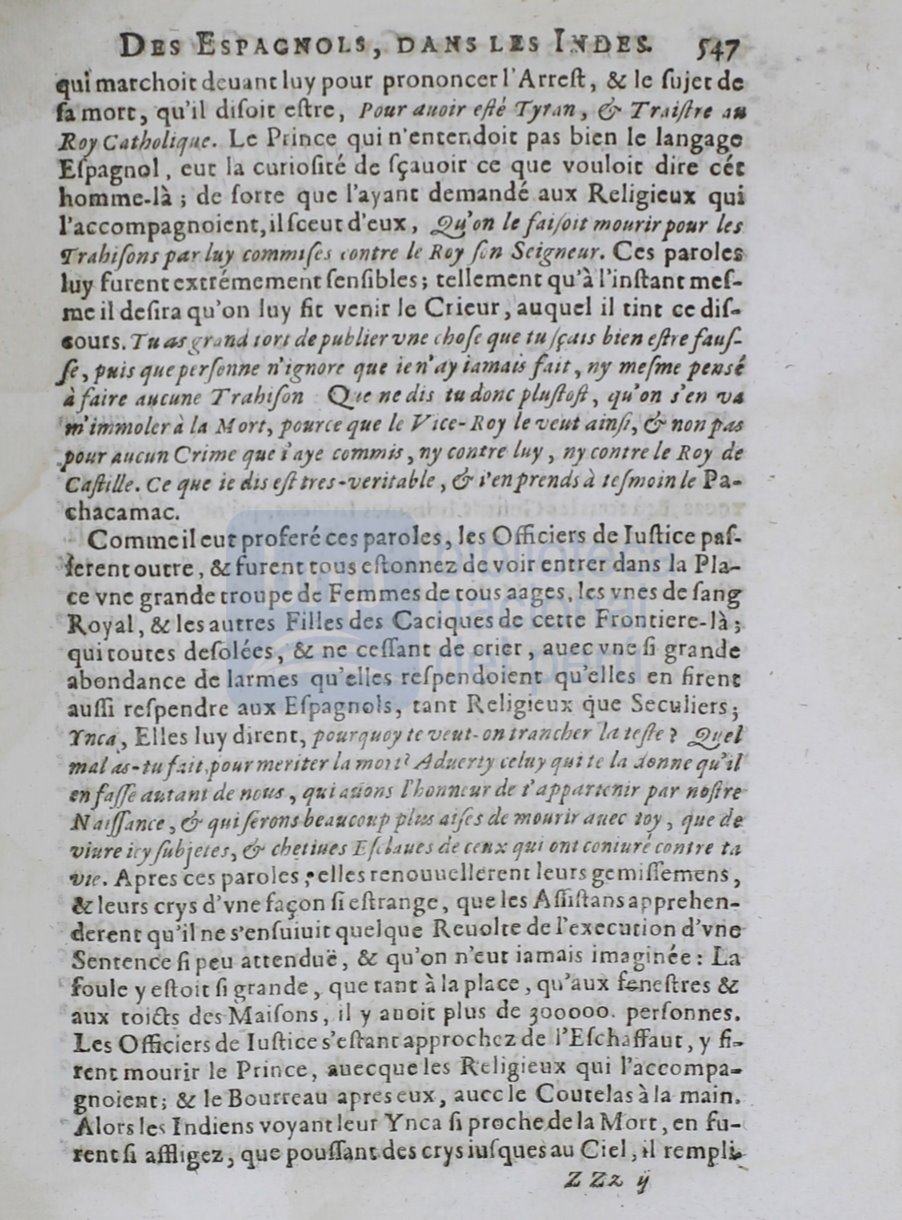 DES ESPAGNOLS, DANS LES INDES. 547
qui marchoit deuant luy pour prononcer l'Arrest, & le sujet de
sa mort, qu'il disoit estre, Pour auoir esté Tyran, & Traistre au
Roy Catholique. Le Prince qui n'entendoit pas bien le langage
Espagnol, eut la curiosité de sçauoir ce que vouloit dire cét
homme-là ; de sorte que l'ayant demandé aux Religieux qui
l'accompagnoient, il sceut d'eux, Qu'on le faisoit mourir pour les
Trahisons par luy commises contre le Roy son Seigneur. Ces paroles
luy furent extrémement sensibles ; tellement qu'à l'instant mes-
me il desira qu'on luy fit venir le Crieur, auquel il tint ce dis-
cours. Tu as grand tort de publier vne chose que tu sçais bien estre faus-
se, puis que personne n'ignore que ie n'ay iamais fait, ny mesme pensé
à faire aucune Trahison Que ne dis tu donc plustost, qu'on s'en va
m'immoler à la Mort, pource que le Vice-Roy le veut ainsi, & non pas
pour aucun Crime que i'aye commis, ny contre luy, ny contre le Roy de
Castille. Ce que ie dis est tres-veritable, & i'en prends à tesmoin le Pa-
chacamac.
Comme il eut proferé ces paroles, les Officiers de Iustice pas-
serent outre, & furent tous estonnez de voir entrer dans la Pla-
ce vne grande troupe de Femmes de tous aages, les vnes de sang
Royal, & les autres Filles des Caciques de cette Frontiere-là ;
qui toutes desolées, & ne cessant de crier, auec vne si grande
abondance de larmes qu'elles respendoient qu'elles en firent
aussi respendre aux Espagnols, tant Religieux que Seculiers ;
Ynca, Elles luy dirent, pourquoy te veut-on trancher la teste ? Quel
mal as-tu fait, pour meriter la mort ? Aduerty celuy qui te la donne qu'il
en fasse autant de nous, qui auons l'honneur de t'appartenir par nostre
Naissance, & qui serons beaucoup plus aises de mourir auec toy, que de
viure icy subjetes, & chetiues Esclaues de ceux qui ont coniuré contre ta
vie. Apres ces paroles, elles renouuellerent leurs gemissemens,
& leurs crys d'vne façon si estrange, que les Assistans apprehen-
derent qu'il ne s'ensuiuit quelque Reuolte de l'execution d'vne
Sentence si peu attenduë, & qu'on n'eut iamais imaginée : La
foule y estoit si grande, que tant à la place, qu'aux fenestres &
aux toicts des Maisons, il y auoit plus de 300000. personnes.
Les Officiers de Iustice s'estant approchez de l'Eschaffaut, y fi-
rent mourir le Prince, auecque les Religieux qui l'accompa-
gnoient ; & le Bourreau apres eux, auec le Coutelas à la main.
Alors les Indiens voyant leur Ynca si proche de la Mort, en fu-
rent si affligez, que poussant des crys iusques au Ciel, il rempli-
ZZz ij
biblioteca
nacional
del perú